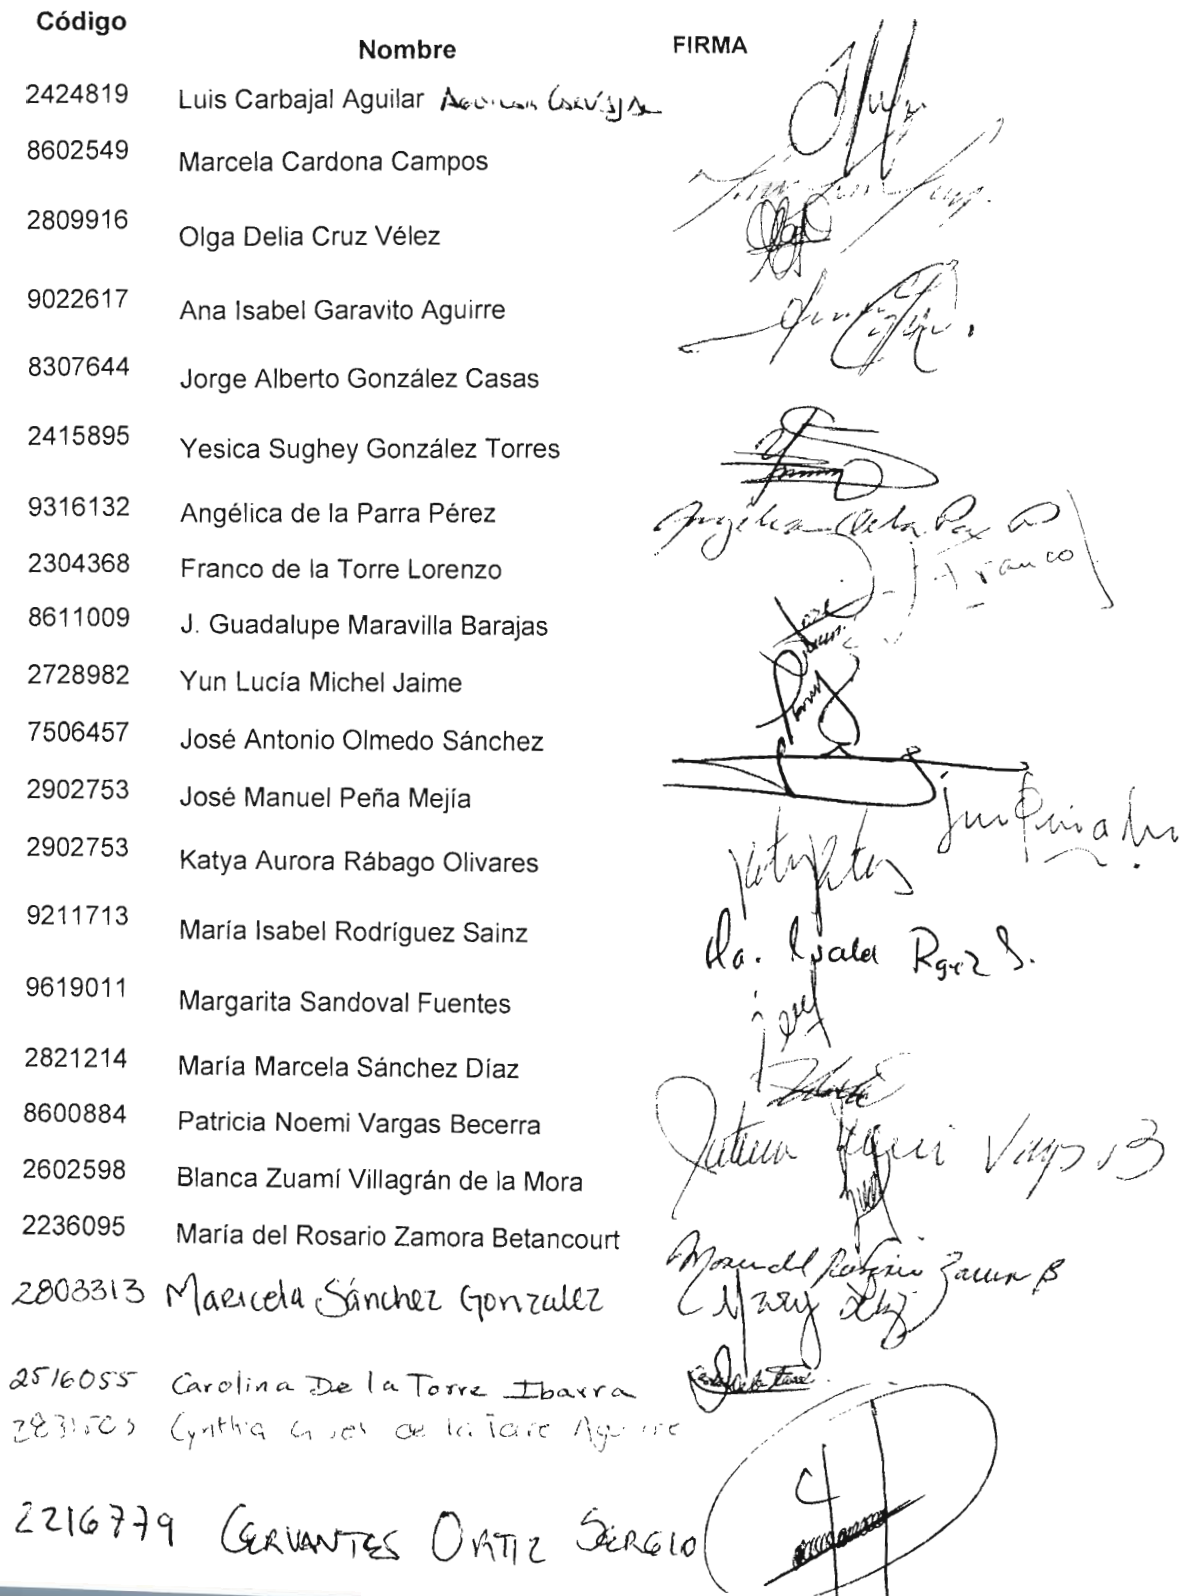 Código Nombre FIRMA
2424819 Luis Carbajal Aguilar
8602549 Marcela Cardona Campos
2809916 Olga Delia Cruz Vélez
9022617 Ana Isabel Garavito Aguirre
8307644 Jorge Alberto González Casas
2415895 Yesica Sughey González Torres
9316132 Angélica de la Parra Pérez Angélica de la
2304368 Franco de la Torre Lorenzo Franco
8611009 J. Guadalupe Maravilla Barajas
2728982 Yun Lucía Michel Jaime
7506457 José Antonio Olmedo Sánchez
2902753 José Manuel Peña Mejía
2902753 Katya Aurora Rábago Olivares
9211713 María Isabel Rodríguez Sainz Ma. Isabel Rgez S.
9619011 Margarita Sandoval Fuentes
2821214 María Marcela Sánchez Díaz
8600884 Patricia Noemi Vargas Becerra
2602598 Blanca Zuamí Villagrán de la Mora
2236095 María del Rosario Zamora Betancourt
2803313 Maricela Sánchez Gonzalez
2516055 Carolina De la Torre Ibarra
Cynthia de la Torre Aguirre
2216779 CERVANTES ORTIZ SERGIO